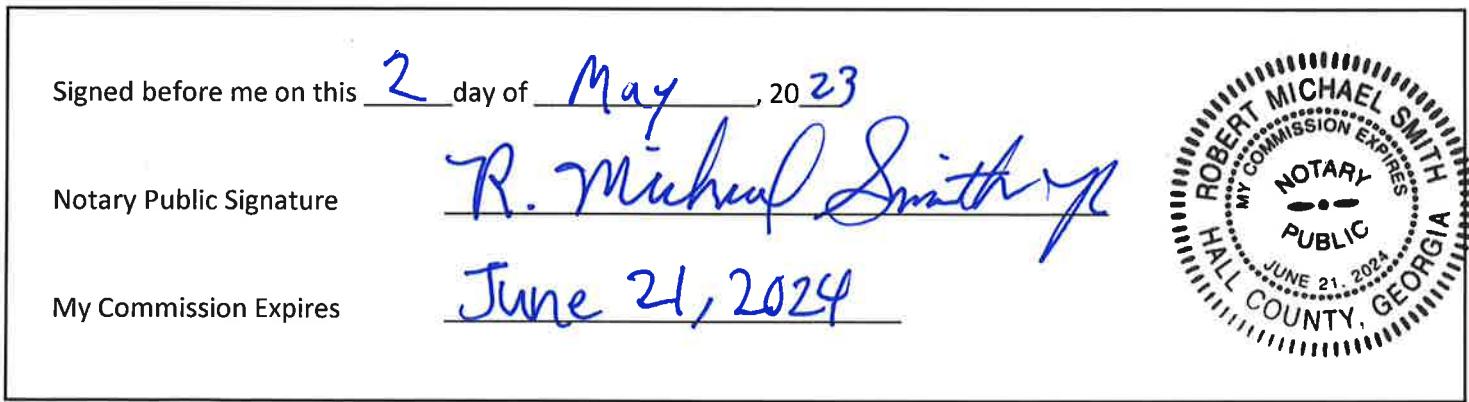 Signed before me on this 2 day of May, 2023
Notary Public Signature R. Michael Smith Jr
My Commission Expires June 21, 2024
ROBERT MICHAEL SMITH
MY COMMISSION EXPIRES
NOTARY
PUBLIC
JUNE 21, 2024
HALL COUNTY, GEORGIA